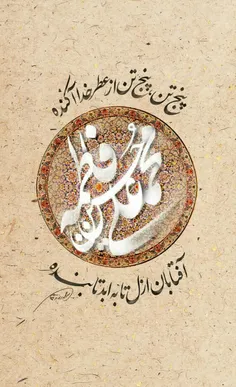 پنج تن، پنج تن از عطر خدا آکنده
محمد علی فاطمه حسن حسین
آفتابان ازل تا به ابد تابنده